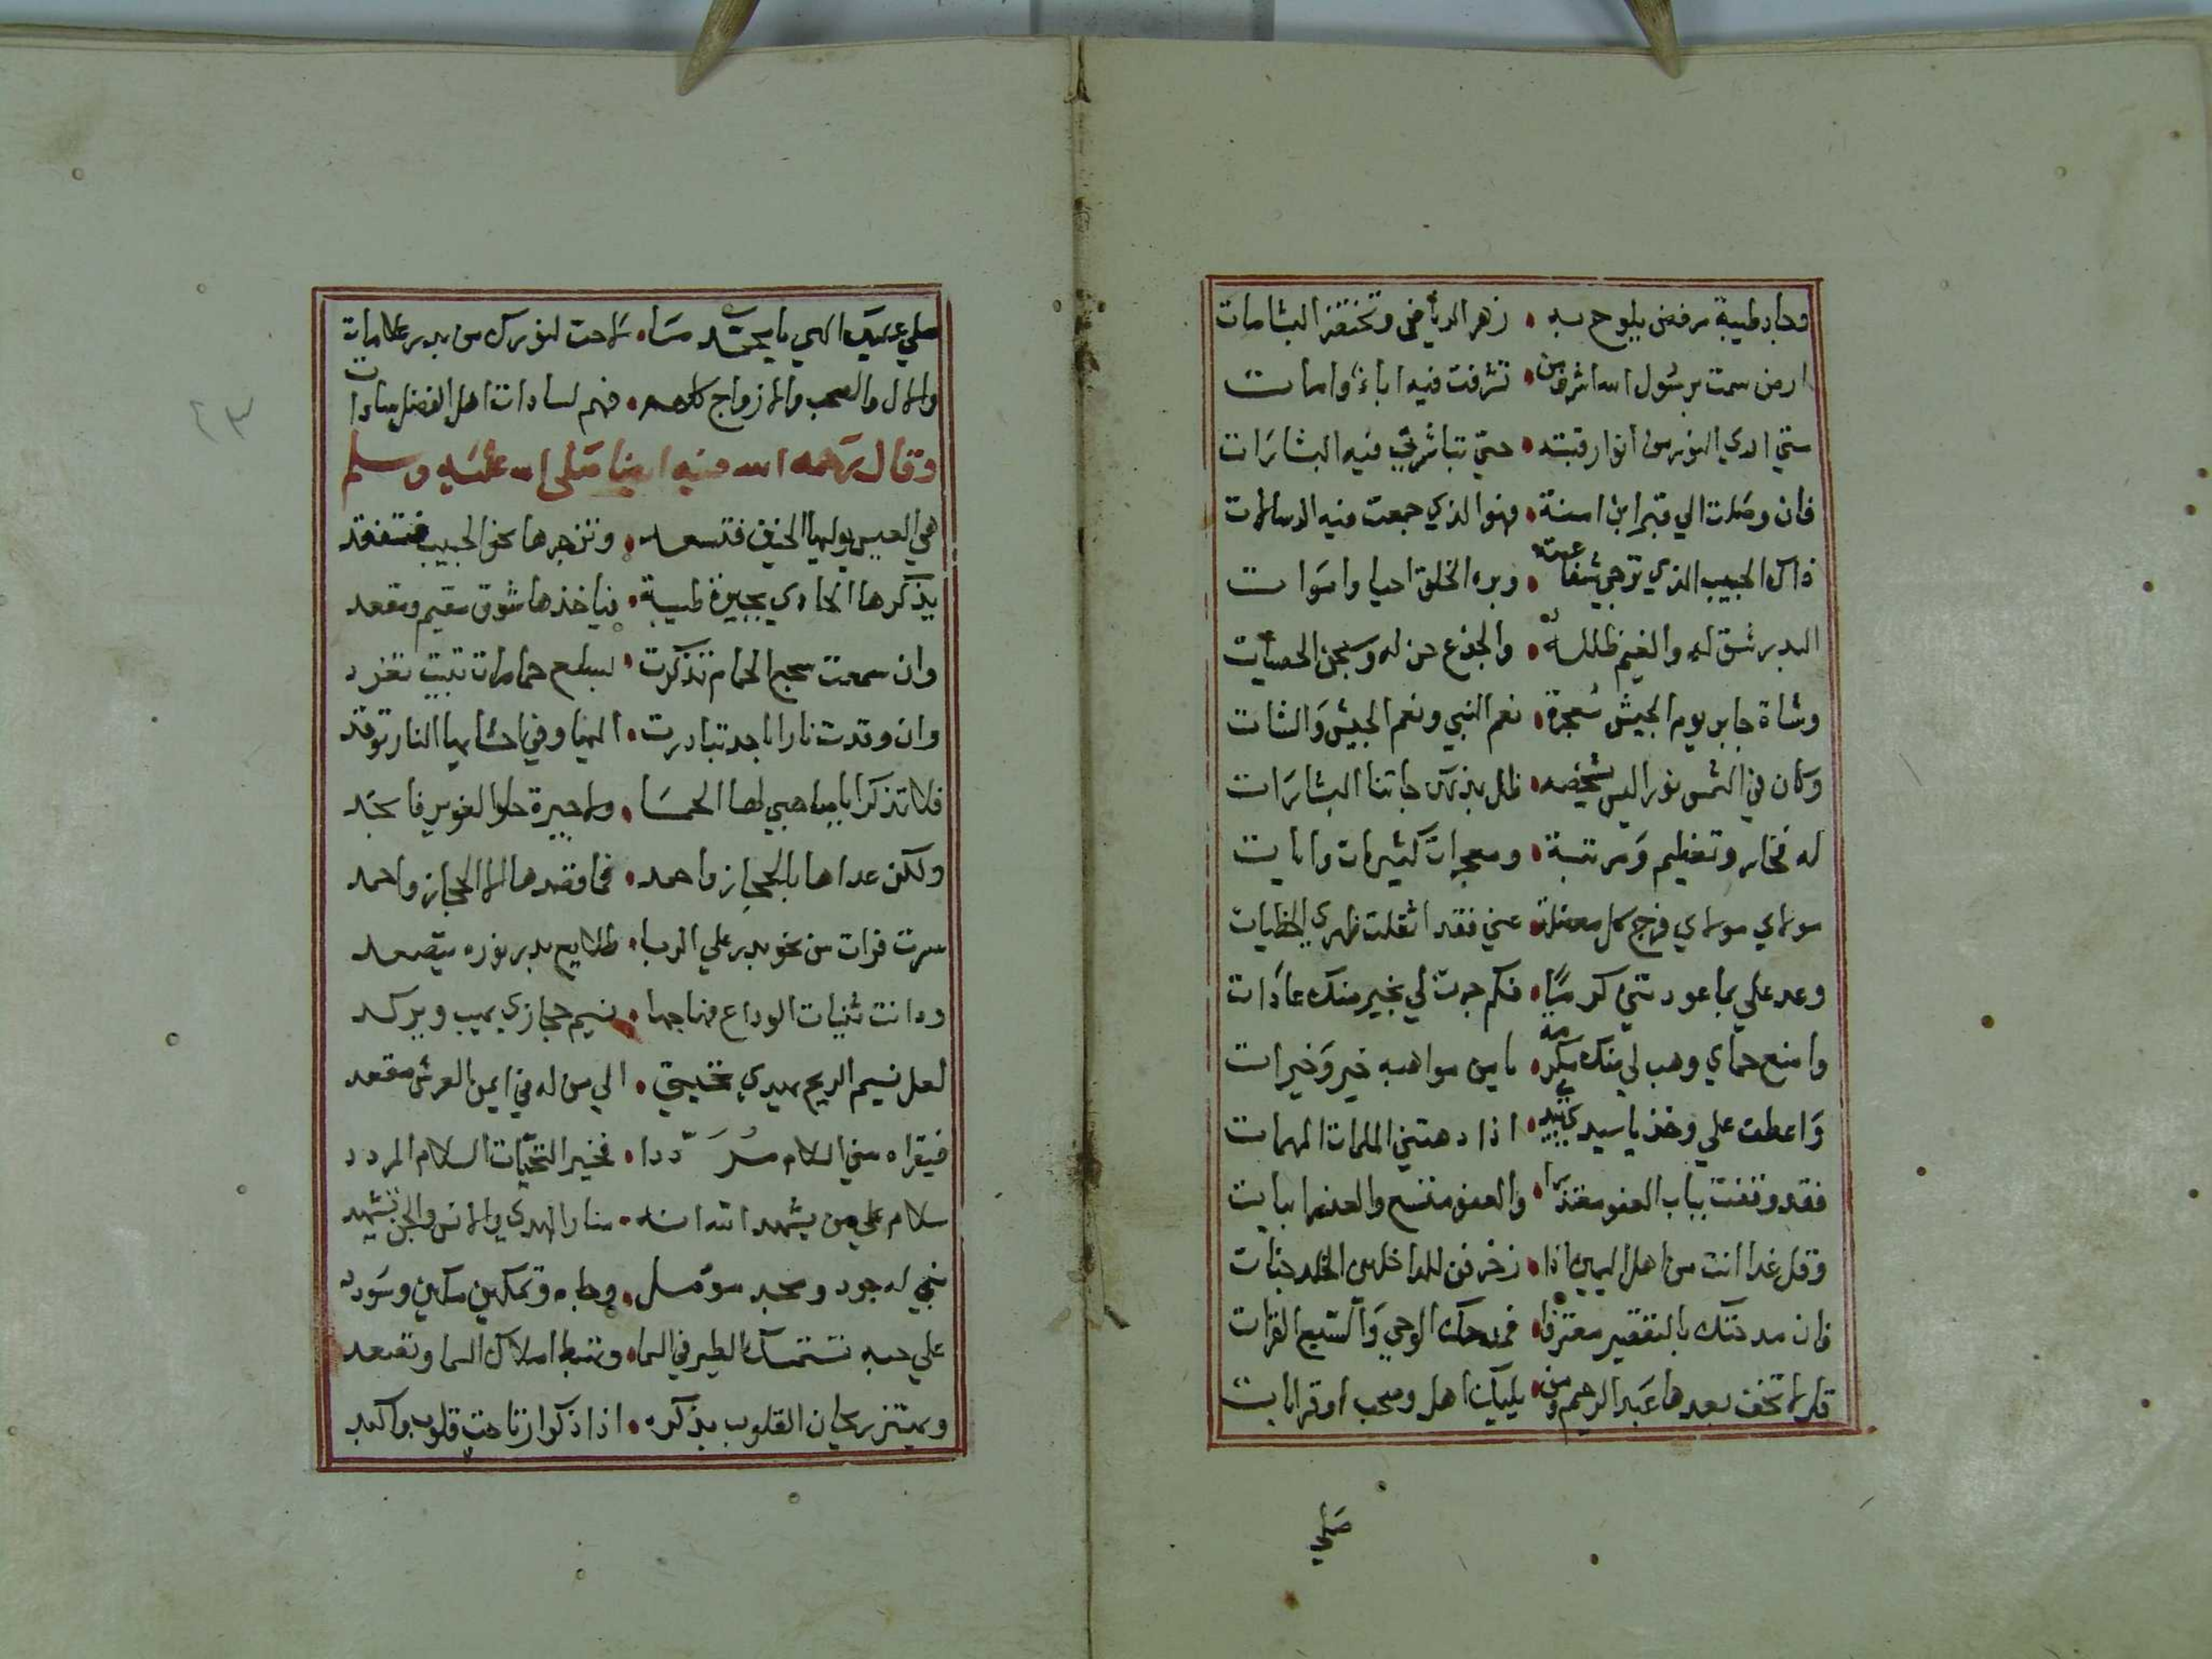 وجاد طيبة مرفض يلوح به • زهر الرياض وتخضر البشامات
ارض سمت برسول الله اشرف من • تشرفت فيه اباء وامات
ستي اري النور من انوار قبته • حتي تباشرني فيه البشارات
فان وصلت الي قبر ابن امنة • فهو الذي جمعت فيه الرسالات
ذاك الحبيب الذي ترجي شفاعته • وبره الخلق احيا واموات
البدر شق له والغيم ظلله • والجذع حن له وسبحن الحصيات
وشاة جابر يوم الجيش معجزة • نعم النبي ونعم الجيش والشات
وكان في الشمس نورا ليس لشخصه • ظل بذكر جاتنا البشارات
له فخار وتعظيم ومرتبة • ومعجزات كثيرات وايات
مولاي مولاي فرج كل معضلة • عني فقد اثقلت ظهري الخطيات
وعد علي بما عودتني كرما • فكم جرت لي بخير منك عادات
وامنع حماي وهب لي منك مكرمة • يا من مواهبه خير وخيرات
واعطف علي وخذ يا سيدي بيدي • اذا دهتني الملمات المهمات
فقد وقفت بباب العفو معتذرا • والعفو متسع والعذر ابيات
وقل غدا انت من اهل اليمين اذا • زخرفن للداخلين الخلد جنات
فان مدحتك بالتقصير معترفا • فمدحك الوحي والسبع القرات
قل لا تخف بعدها عبد الرحيم ومن • يليك اهل وصحب او قرابات
صلي
صلي عليك الهي يا محمد ما • لاحت لنورك من بدر علامات
والال والصحب والازواج كلهم • فهم لسادات اهل الفضل سادات
وقال رحمه الله فيه ايضا صلى الله عليه وسلم
هي العيس يوليها الحنين فتسعد • وتزجرها نحو الحبيب فتقعد
يذكرها الحادي بجيرة طيبة • فياخذها شوق مقيم ومقعد
وان سمعت سجع الحمام تذكرت • لسلع حمامات تبيت تغرد
وان وقدت نارا باجد تبادرت • اليها وفي احشايها النار توقد
فلا تذكرا يا صاحبي لها الحما • ولا جيرة حلوا الغوير فانجد
ولكن عداها بالحجاز واحمد • فما قصدها الا الحجاز واحمد
سرت فرات من نحو بدر علي الربا • طلايع بدر نوره يتصعد
ودانت ثنيات الوداع فهاجها • نسيم حجازي يهب ويركد
لعل نسيم الريح يهدي تحيتي • الي من له في ايمن العرش مقعد
فيقراه مني السلام مرددا • فخير التحيات السلام المردد
سلام علي من يشهد الله انه • منار الهدي والانس والجن تشهد
نبي له جود ومجد موثل • وجاه وتمكين مكين وسودد
علي حبه تستمسك الطير في السما • وتهبط املاك السما وتصعد
ويهتز ريحان القلوب بذكره • اذا ذكروا ارتاحت قلوب واكبد